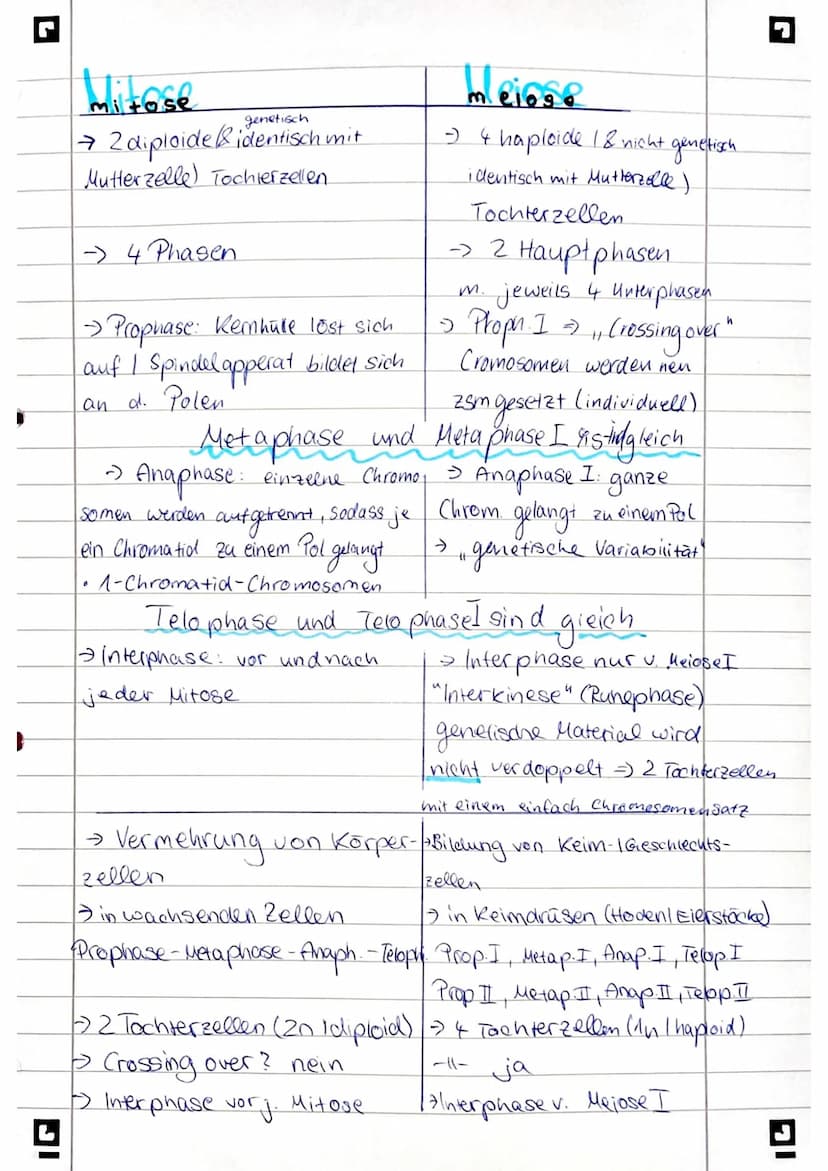 Mitose
mitose
→ 2 diploide (& genetisch identisch mit
Mutterzelle) Tochterzellen
→ 4 Phasen
→ Prophase: Kernhülle löst sich
auf / Spindelapperat bildet sich
an d. Polen
Meiose
meiose
→ 4 haploide (& nicht genetisch
identisch mit Mutterzelle)
Tochterzellen
→ 2 Hauptphasen
m. jeweils 4 Unterphasen
→ Proph. I ⇒ „Crossing over"
Cromosomen werden neu
zsm gesetzt (individuell)
Metaphase und Metaphase I gleich
→ Anaphase: einzelne Chromo
somen werden aufgetrennt, sodass je
ein Chromatid zu einem Pol gelangt
• 1-Chromatid-Chromosomen
→ Anaphase I: ganze
Chrom. gelangt zu einem Pol
→ „genetische Variabilität"
Telophase und Telophase I sind gleich
→ Interphase: vor und nach
jeder Mitose
→ Interphase nur v. Meiose I
"Interkinese" (Ruhephase)
genetische Material wird
nicht verdoppelt ⇒ 2 Tochterzellen
mit einem einfach Chromosomensatz
→ Vermehrung von Körper-
zellen
→ in wachsenden Zellen
Prophase - Metaphase - Anaph. - Teloph.
→ 2 Tochterzellen (2n / diploid)
→ Crossing over? nein
→ Interphase vor j. Mitose
→ Bildung von Keim-/Geschlechts-
zellen
→ in Keimdrüsen (Hoden/Eierstöcke)
Prop. I, Metap. I, Anap. I, Telop I
Prop II, Metap. II, Anap II, Telop II
→ 4 Tochterzellen (1n / haploid)
-||- ja
→ Interphase v. Meiose I